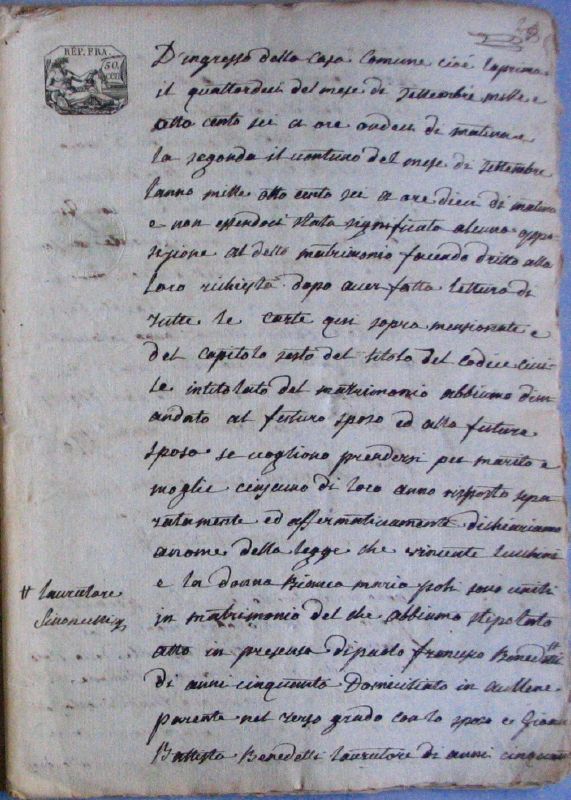 RÉP. FRA.
50
CEN
D'ingresso della Casa Comune cioè la prima
il quattordeci del mese di Settembre mille e
otto cento sei a ore ondeci di matina e
la segonda il ventuno del mese di Settembre
lanno mille otto cento sei a ore dieci di matina
e non essendoci stata significata alcuna oppo
sizione al detto matrimonio facendo dritto alla
loro richiesta dopo aver fatta lettura di
tutte le carte qui sopra mensionate e
del capitolo sesto del titolo del codice civi
le intitolato del matrimonio abbiamo dim
andato al futuro sposo ed alla futura
sposa se vogliono prendersi per marito e
moglie ciascuno di loro anno risposto sepa
ratamente ed affermativamente dichiariamo
a nome della legge che vincente
e la donna Bianca maria poli sono uniti
in matrimonio del che abbiamo stipolato
atto in presenza di paolo francesco Benedetti #
di anni cinquanta Domiciliato in aullene
parente nel terzo grado con lo sposo e Gioan
Battista Benedetti lavoratore di anni cinquanta
# lavoratore